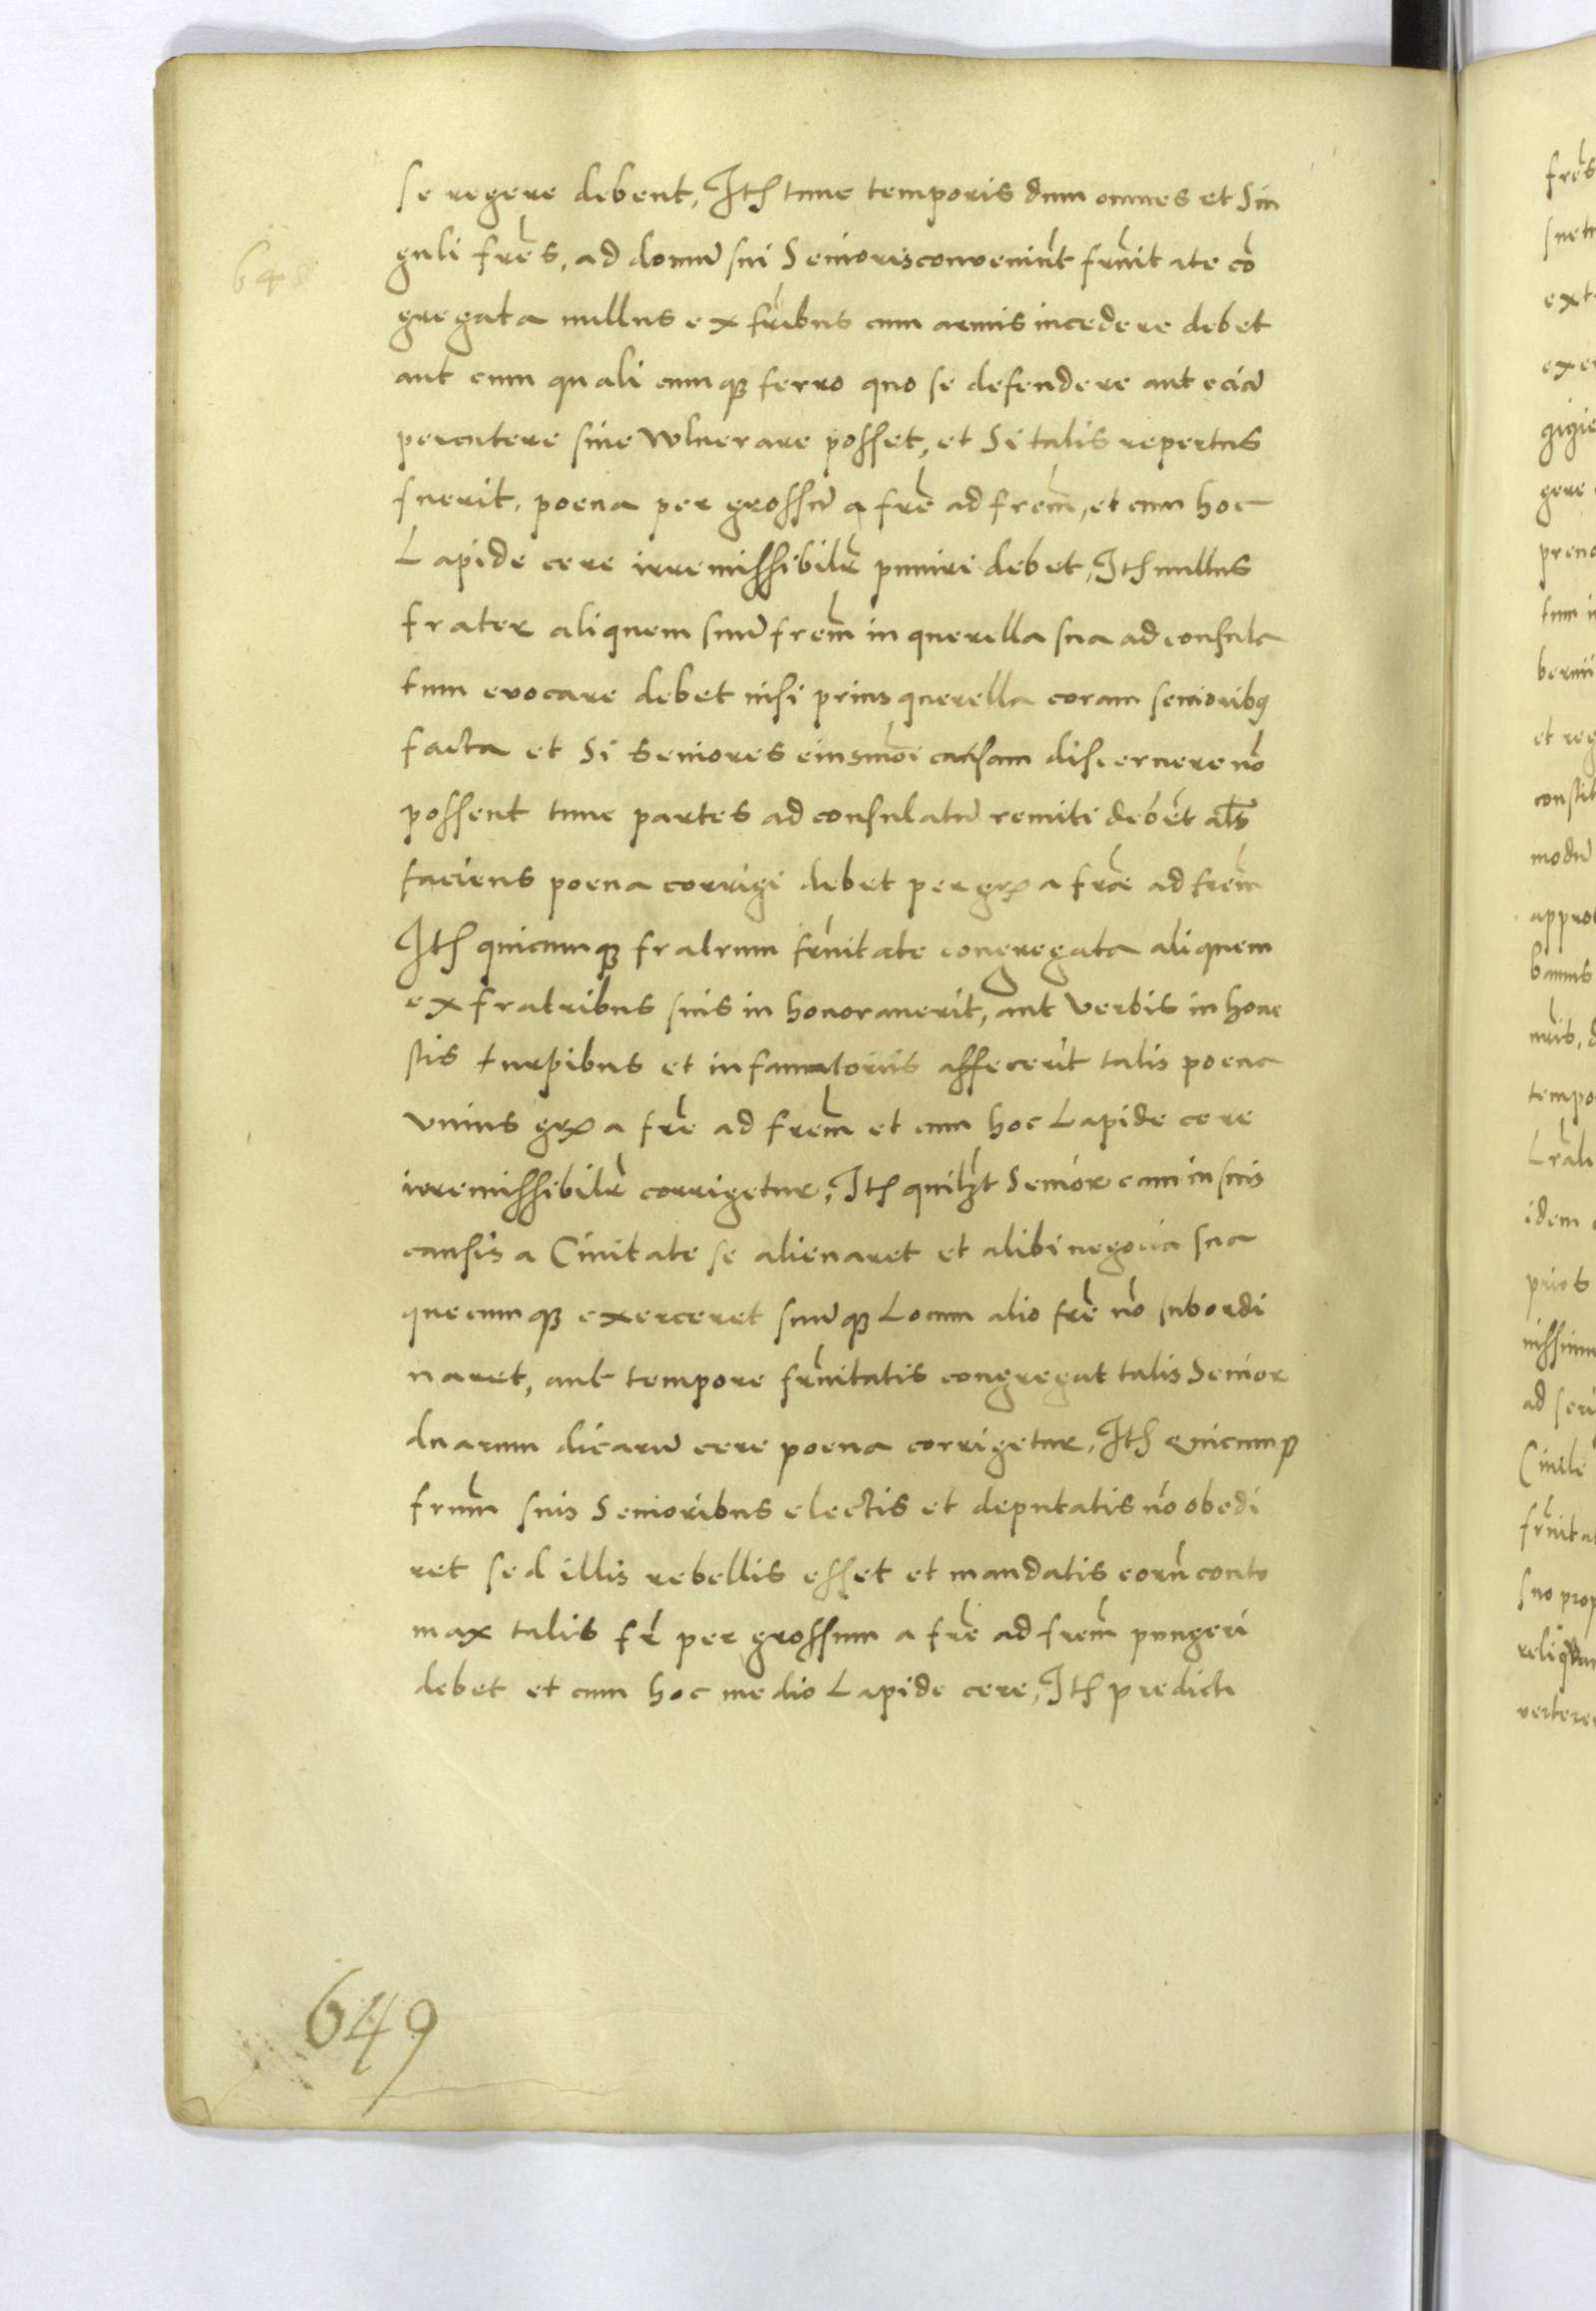 se regere debent, Itᷤ tunc temporis dum omnes et Sin
guli fr̃es, ad domũ sui Senioris conveniũt fr̃nitate cõ
gregata nullus ex fr̃ibus cum armis incedere debet
aut cum quali cumqꝫ ferro quo se defendere aut eciã
percutere sive wlnerare posset, et Si talis repertus
fuerit, poena per grossũ a fr̃e ad frẽm, et cum hoc
Lapide cere irremissibilr̃ puniri debet, Itᷤ nullus
frater aliquem suũ frẽm in querella sua ad consula
tum evocare debet nisi prius querella coram seniorib9
facta et Si Seniores eiusmõi causam discernere nõ
possent tunc partes ad consulatũ remiti debẽt alᷤ
faciens poena corrigi debet per gꝝ a fr̃e ad frẽm
Itᷤ quicumqꝫ fratrum fr̃nitate congregata aliquem
ex fratribus suis in honoraverit, aut verbis in hone
stis turpibus et infamatoriis affecerit talis poena
unius gꝝ a fr̃e ad frẽm et cum hoc Lapide cere
irremissibilr̃ corrigetur, Itᷤ quilꝫt Senior cum in suis
causis a Civitate se alienaret et alibi negocia sua
quecumqꝫ exerceret suũqꝫ Locum alio fr̃e nõ subordi
naret, aut tempore fr̃nitatis congregat talis Senior
duarum dicarũ cere poena corrigetur, Itᷤ Quicumqꝫ
frũm suis Senioribus electis et deputatis nõ obedi
ret sed illis rebellis esset et mandatis eorũ contu
max talis fr̃ per grossum a fr̃e ad frẽm pungeri
debet et cum hoc medio Lapide cere, Itᷤ predicti
648
649